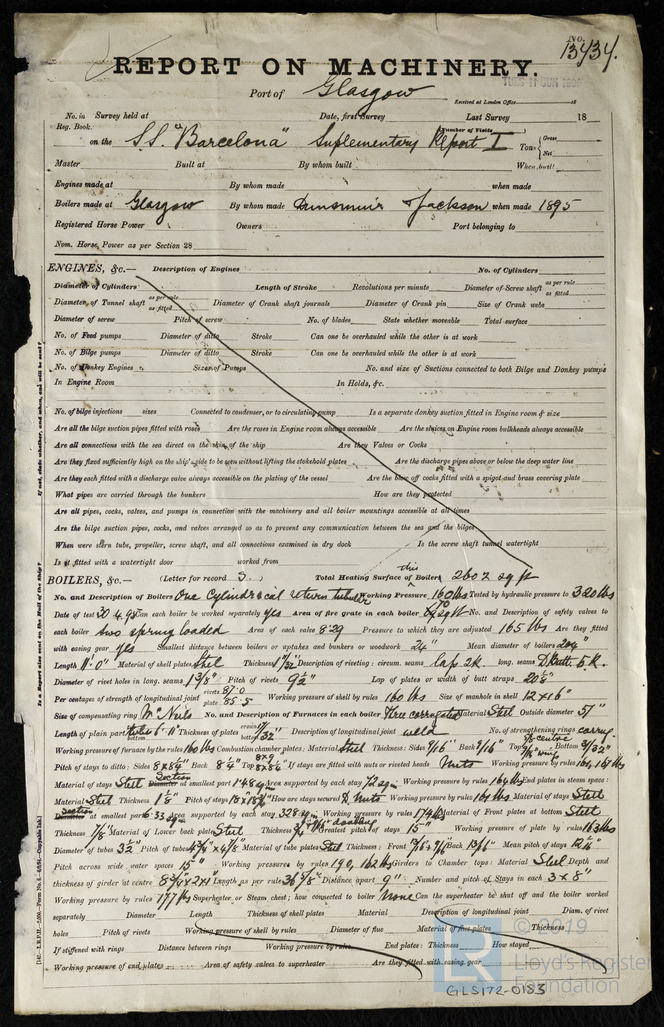 No. 13434.
REPORT ON MACHINERY.
Port of Glasgow
Received at London Office 18
No. in Survey held at Date, first Survey Last Survey 18
Reg. Book. (Number of Visits
on the S.S. "Barcelona" Suplementary Report I Tons Gross Net
Master Built at By whom built When built
Engines made at By whom made when made
Boilers made at Glasgow By whom made Dunsmuir Jackson when made 1895
Registered Horse Power Owners Port belonging to
Nom. Horse Power as per Section 28
ENGINES, &c.— Description of Engines No. of Cylinders
Diameter of Cylinders Length of Stroke Revolutions per minute Diameter of Screw shaft as per rule as fitted
Diameter of Tunnel shaft as per rule as fitted Diameter of Crank shaft journals Diameter of Crank pin Size of Crank webs
Diameter of screw Pitch of screw No. of blades State whether moveable Total surface
No. of Feed pumps Diameter of ditto Stroke Can one be overhauled while the other is at work
No. of Bilge pumps Diameter of ditto Stroke Can one be overhauled while the other is at work
No. of Donkey Engines Sizes of Pumps No. and size of Suctions connected to both Bilge and Donkey pumps
In Engine Room In Holds, &c.
No. of bilge injections sizes Connected to condenser, or to circulating pump Is a separate donkey suction fitted in Engine room & size
Are all the bilge suction pipes fitted with roses Are the roses in Engine room always accessible Are the sluices on Engine room bulkheads always accessible
Are all connections with the sea direct on the skin of the ship Are they Valves or Cocks
Are they fixed sufficiently high on the ship's side to be seen without lifting the stokehold plates Are the discharge pipes above or below the deep water line
Are they each fitted with a discharge valve always accessible on the plating of the vessel Are the blow off cocks fitted with a spigot and brass covering plate
What pipes are carried through the bunkers How are they protected
Are all pipes, cocks, valves, and pumps in connection with the machinery and all boiler mountings accessible at all times
Are the bilge suction pipes, cocks, and valves arranged so as to prevent any communication between the sea and the bilges
When were stern tube, propeller, screw shaft, and all connections examined in dry dock Is the screw shaft tunnel watertight
Is it fitted with a watertight door worked from
BOILERS, &c.— (Letter for record S.) Total Heating Surface of this Boiler 2602 sq ft
No. and Description of Boilers One Cylindrical return tubular Working Pressure 160 lbs Tested by hydraulic pressure to 320 lbs
Date of test 30.4.95 Can each boiler be worked separately yes Area of fire grate in each boiler sq ft No. and Description of safety valves to
each boiler two spring loaded Area of each valve 8.29 Pressure to which they are adjusted 165 lbs Are they fitted
with easing gear yes Smallest distance between boilers or uptakes and bunkers or woodwork 24" Mean diameter of boilers
Length 11'.0" Material of shell plates Steel Thickness Description of riveting: circum. seams lap 2R. long. seams
Diameter of rivet holes in long. seams 1 3/8" Pitch of rivets 9 1/2" Lap of plates or width of butt straps 20 5/8"
Per centages of strength of longitudinal joint rivets 87.0 plate 85.5 Working pressure of shell by rules 160 lbs Size of manhole in shell 12 x 16"
Size of compensating ring McNeils No. and Description of Furnaces in each boiler three corrugated Material Steel Outside diameter 51"
Length of plain part Thickness of plates Description of longitudinal joint weld No. of strengthening rings corrug.
Working pressure of furnace by the rules 160 lbs Combustion chamber plates: Material Steel Thickness: Sides 9/16" Back 9/16" Top Bottom
Pitch of stays to ditto: Sides 8 x 8 1/2" Back Top If stays are fitted with nuts or riveted heads Nuts Working pressure by rules
Material of stays Steel Section at smallest part 1.48 Area supported by each stay Working pressure by rules 164 lbs End plates in steam space:
Material Steel Thickness 1 1/8" Pitch of stays How are stays secured D. Nuts Working pressure by rules Material of stays Steel
Section at smallest part Area supported by each stay Working pressure by rules Material of Front plates at bottom Steel
Thickness 7/8" Material of Lower back plate Steel Thickness Greatest pitch of stays 15" Working pressure of plate by rules 163 lbs
Diameter of tubes 3 1/2" Pitch of tubes Material of tube plates Steel Thickness: Front Back 13/16" Mean pitch of stays
Pitch across wide water spaces 15" Working pressures by rules 190, 162 lbs Girders to Chamber tops: Material Steel Depth and
thickness of girder at centre Length as per rule Distance apart 9" Number and pitch of Stays in each 3 x 8"
Working pressure by rules 177 lbs Superheater or Steam chest; how connected to boiler None Can the superheater be shut off and the boiler worked
separately Diameter Length Thickness of shell plates Material Description of longitudinal joint Diam. of rivet
holes Pitch of rivets Working pressure of shell by rules Diameter of flue Material of flue plates Thickness
If stiffened with rings Distance between rings Working pressure by rules End plates: Thickness How stayed
Working pressure of end plates Area of safety valves to superheater Are they fitted with easing gear
GLS172-0183
© 2019
Lloyd's Register
Foundation